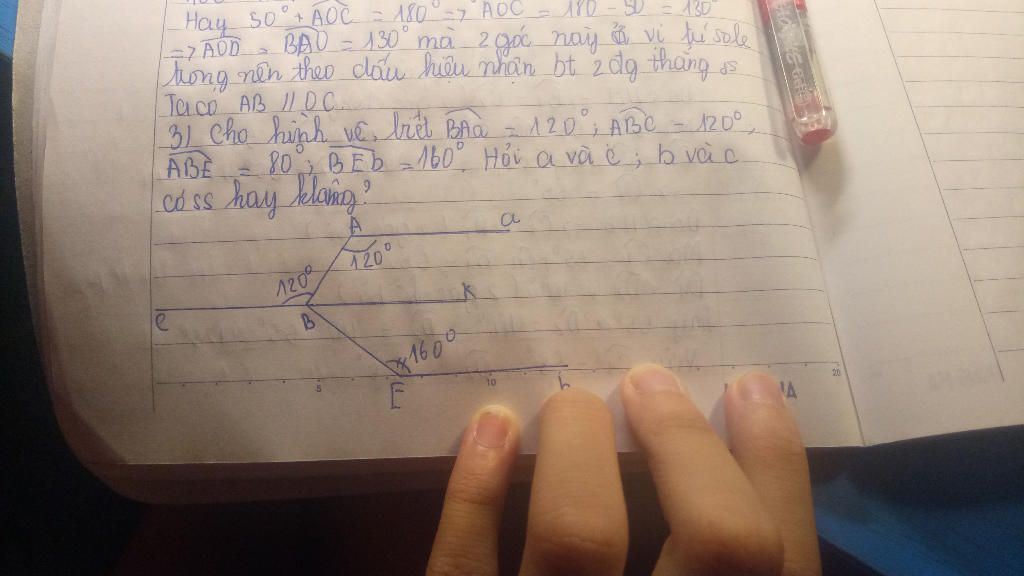 Hay 50° + AOC = 180° => AOC = 180 - 50 = 130°
=> AOD = BAO = 130° mà 2 góc nay ở vi tí sole
trong nên theo dấu hiệu nhận bt 2 đg thẳng ss
Taco AB // DC
3) Cho hình vẽ, biết BAa = 120°; ABC = 120°,
ABE = 80°; BEb = 160°. Hỏi a và c; b và c
có ss hay không?
A a
120°
120°
K
c B
160°
5 10 20
E b